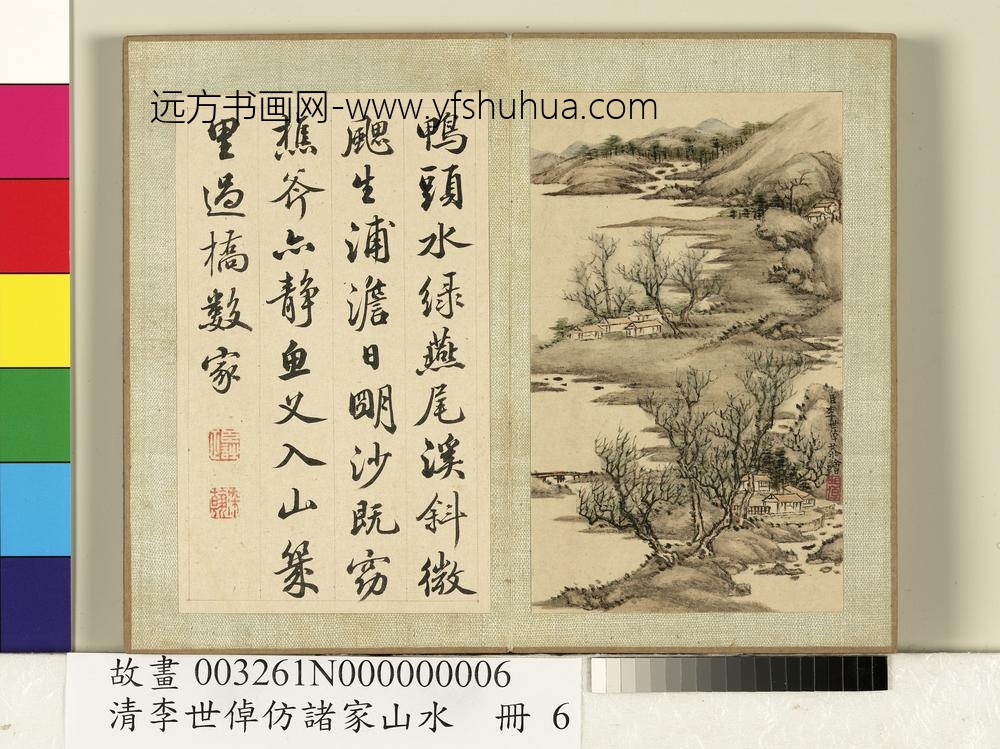 远方书画网-www.yfshuhua.com
鴨頭水綠燕尾溪斜微
颸生浦澹日明沙既窈
樵斧亦静魚义入山幾
里過橋数家
臣李世倬恭繪
故畫 003261N000000006
清李世倬仿諸家山水 冊 6